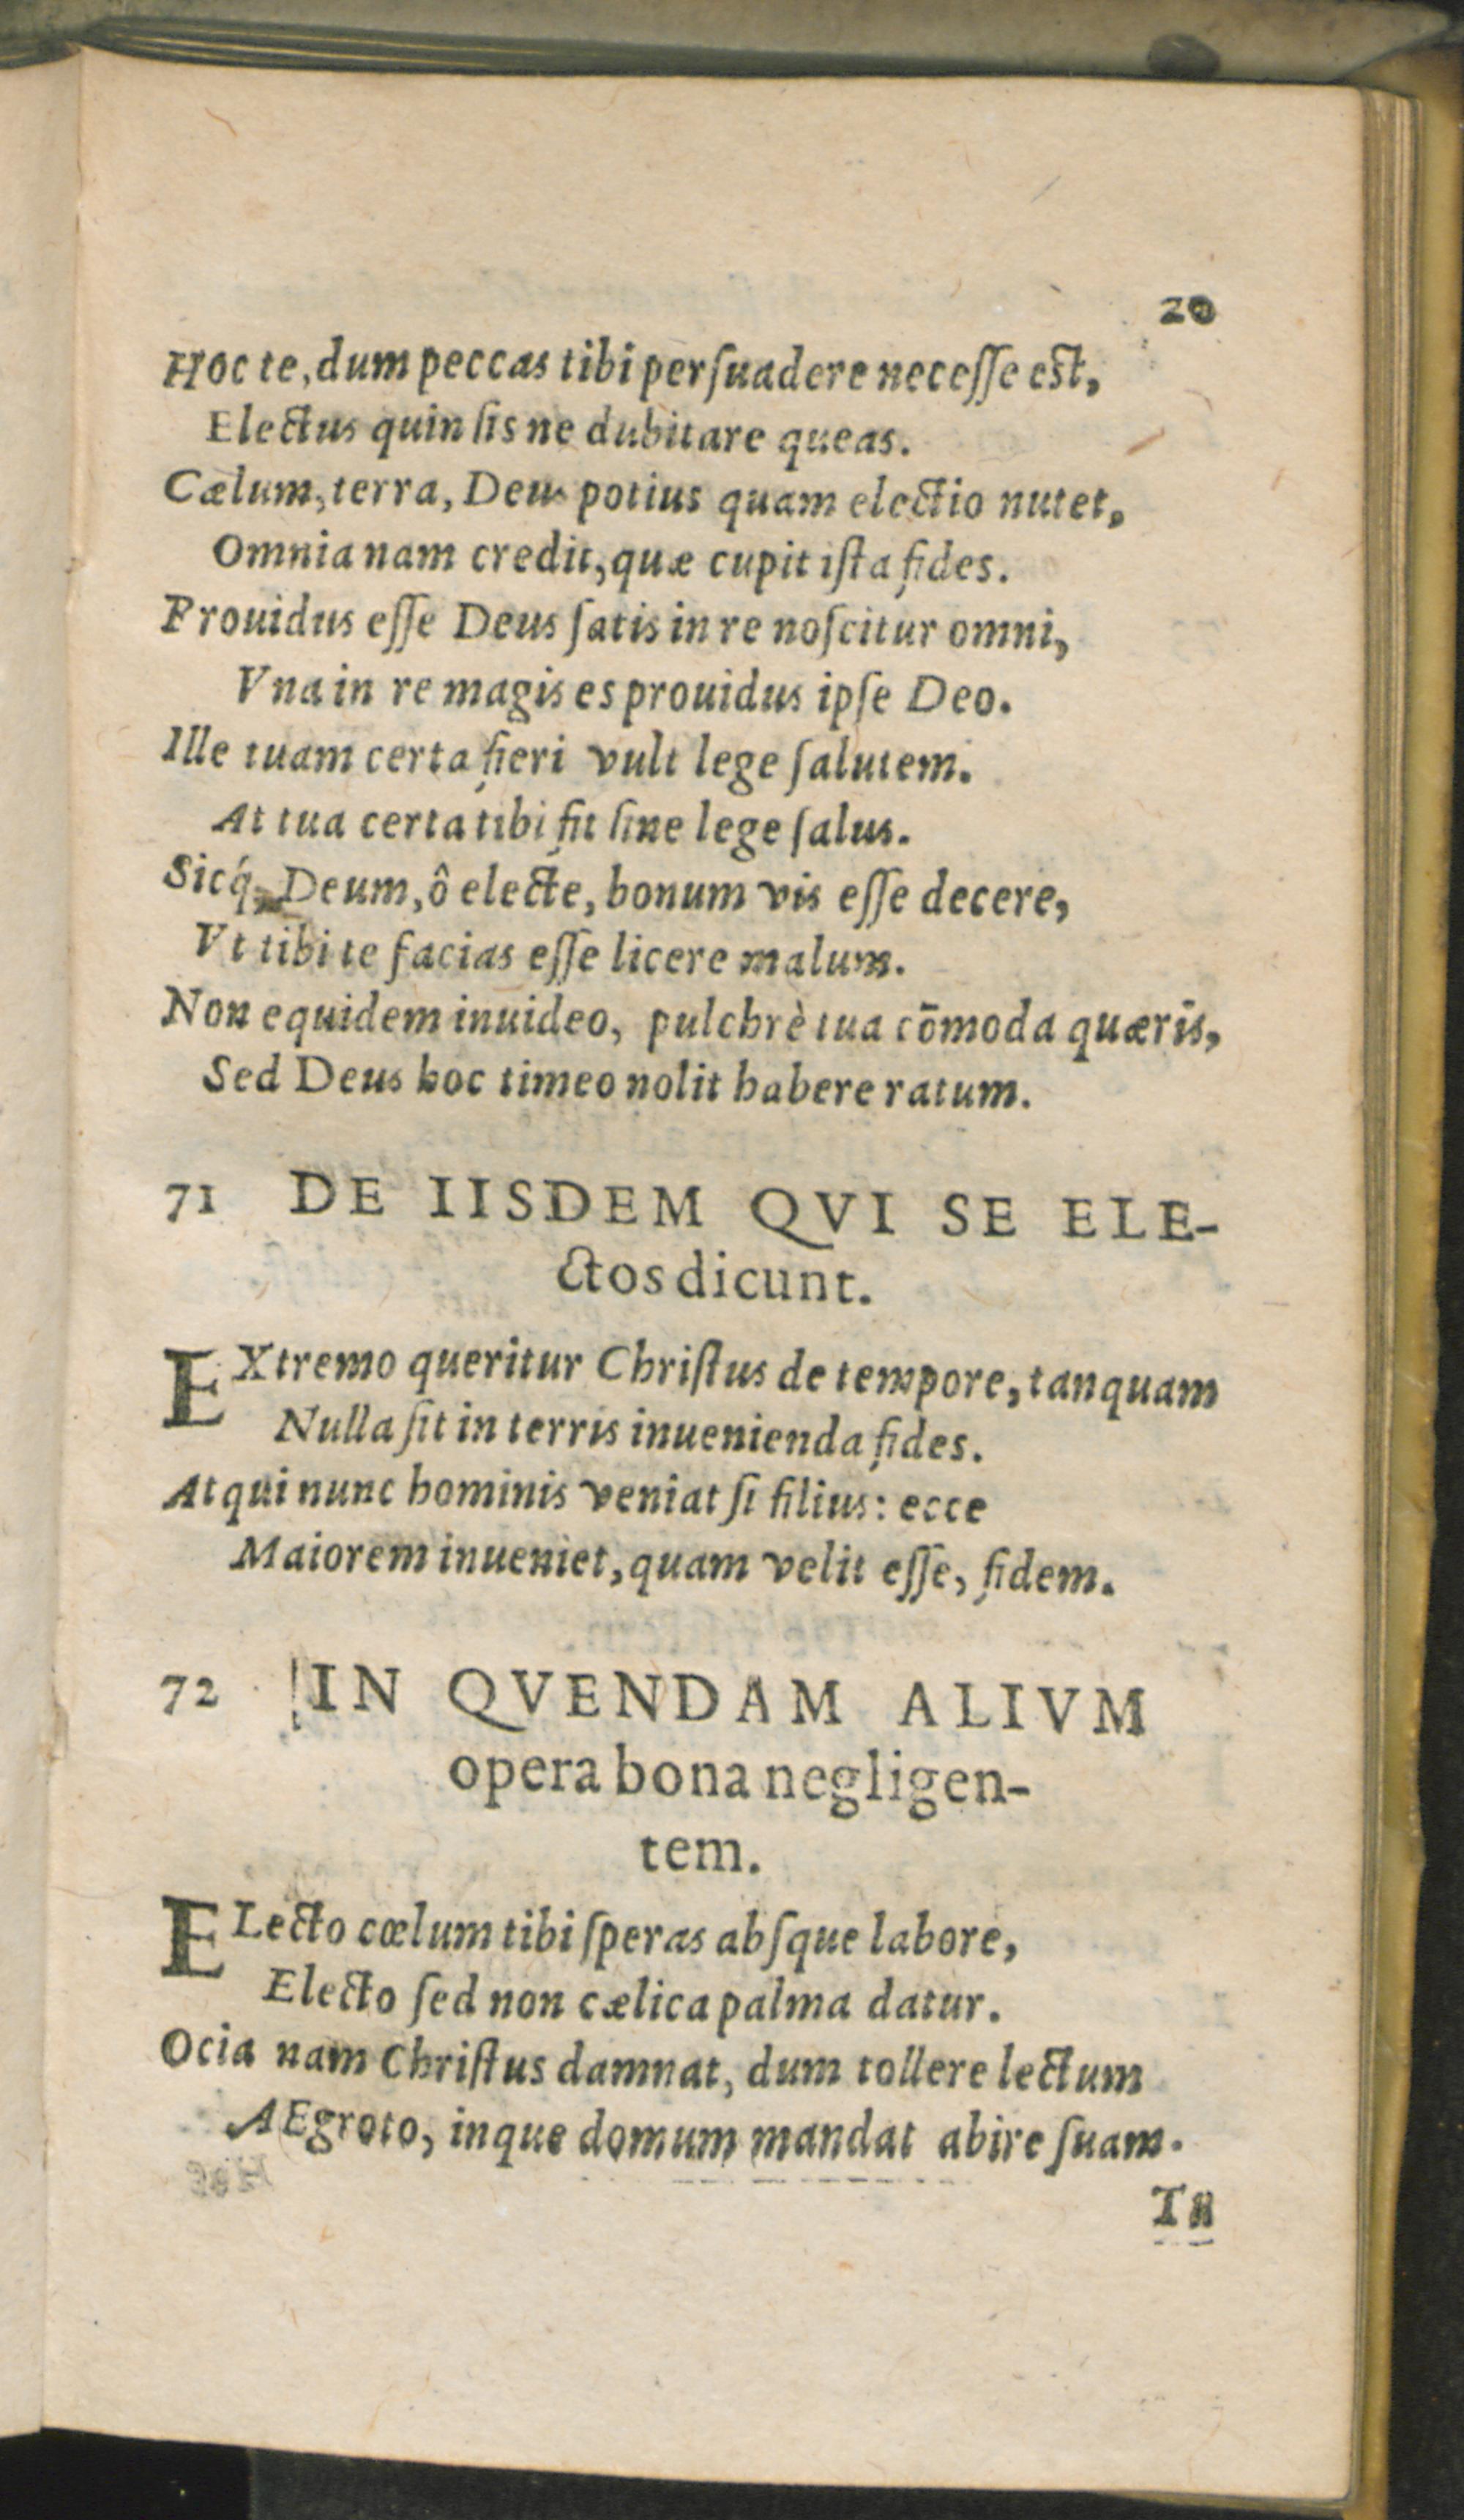 20
Hoc te, dum peccas tibi perſuadere neceſſe est,
Electus quin ſis ne dubitare queas.
Cælum, terra, Deus potius quam electio nutet,
Omnia nam credit, quæ cupit iſta fides.
Prouidus eſſe Deus ſatis in re noſcitur omni,
Vna in re magis es prouidus ipſe Deo.
Ille tuam certa fieri vult lege ſalutem.
At tua certa tibi fit ſine lege ſalus.
Sicq́; Deum, ô electe, bonum vis eſſe decere,
Vt tibi te facias eſſe licere malum.
Non equidem inuideo, pulchrè tua cōmoda quæris,
Sed Deus hoc timeo nolit habere ratum.
71 DE IISDEM QVI SE ELE-
ctos dicunt.
EXtremo queritur Chriſtus de tempore, tanquam
Nulla ſit in terris inuenienda fides.
Atqui nunc hominis veniat ſi filius: ecce
Maiorem inueniet, quam velit eſſe, fidem.
72 IN QVENDAM ALIVM
opera bona negligen-
tem.
ELecto cœlum tibi ſperas abſque labore,
Electo ſed non cælica palma datur.
Ocia nam Chriſtus damnat, dum tollere lectum
AEgroto, inque domum mandat abire ſuam.